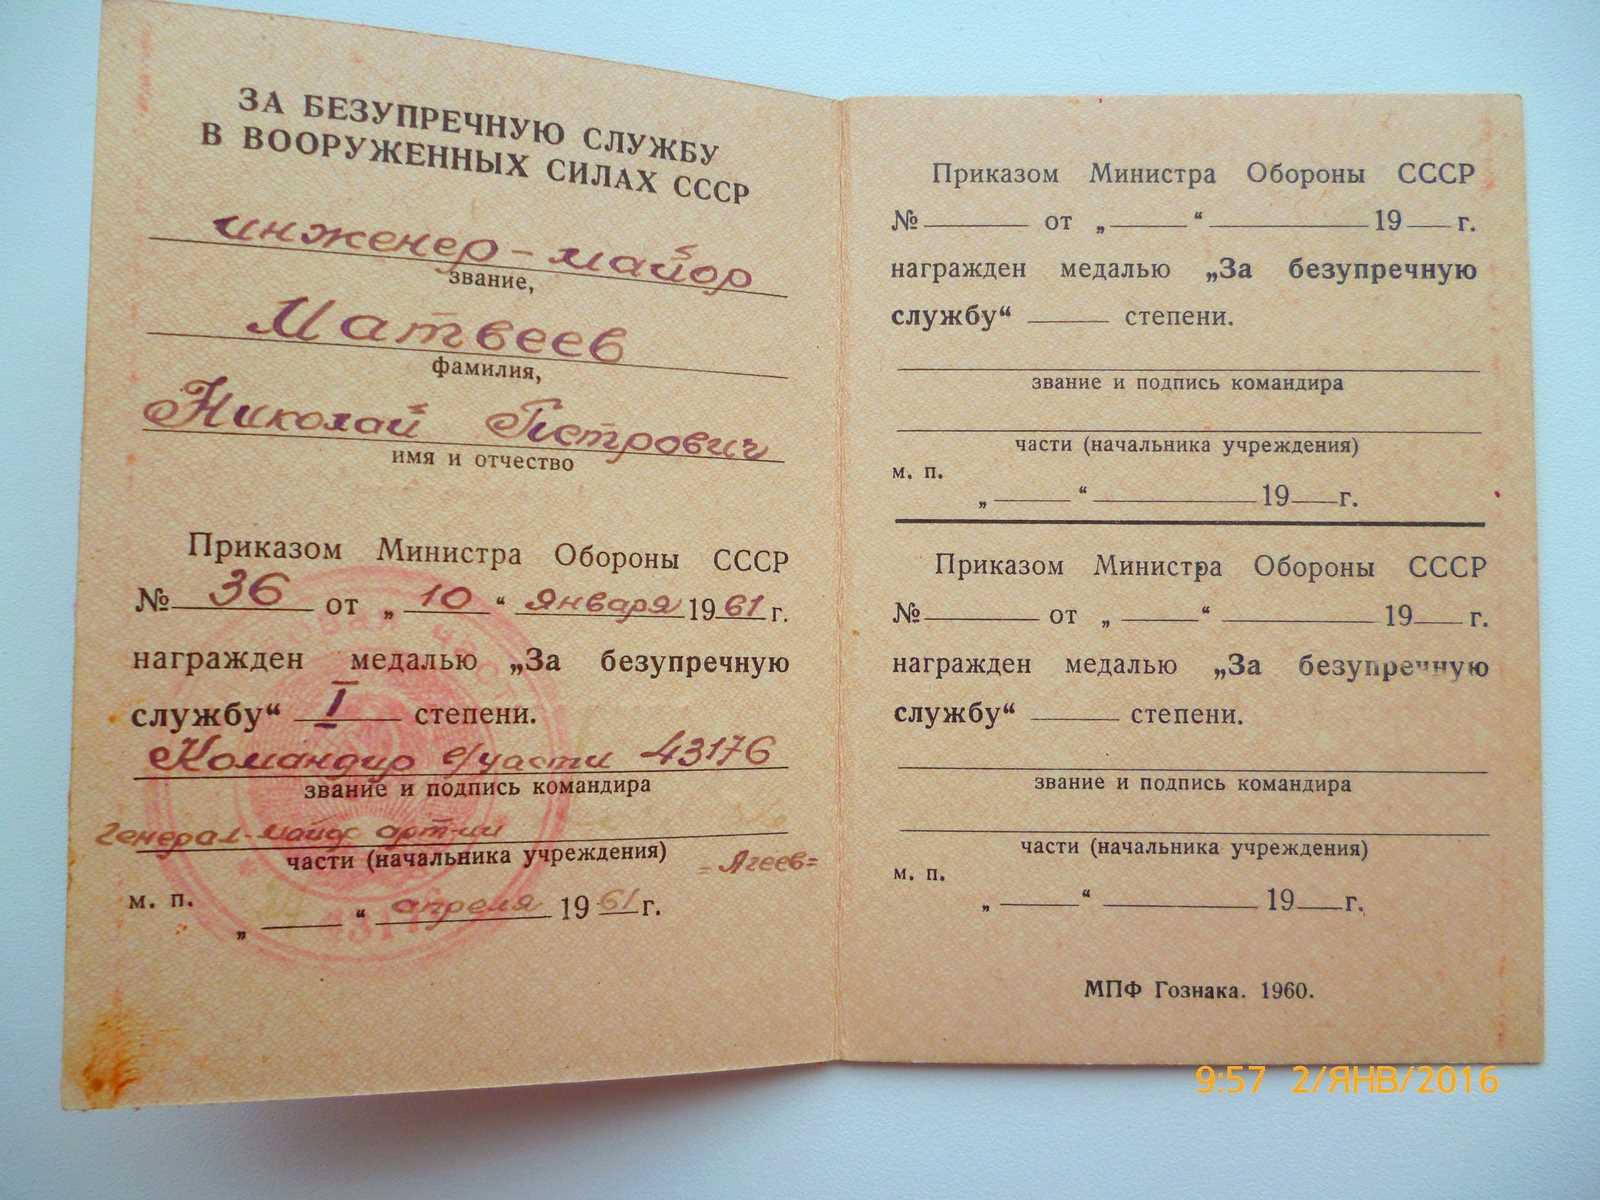 ЗА БЕЗУПРЕЧНУЮ СЛУЖБУ
В ВООРУЖЕННЫХ СИЛАХ СССР
инженер-майор
звание,
Матвеев
фамилия,
Николай Петрович
имя и отчество
Приказом Министра Обороны СССР
№ 36 от „ 10 “ января 19 61 г.
награжден медалью „За безупречную
службу“ I степени.
Командир в/части 43176
звание и подпись командира
генерал-майор арт-ии
части (начальника учреждения) =Агеев=
м. п.
„ “ апреля 19 61 г.
Приказом Министра Обороны СССР
№ от „ “ 19 г.
награжден медалью „За безупречную
службу“ степени.
звание и подпись командира
части (начальника учреждения)
м. п.
„ “ 19 г.
Приказом Министра Обороны СССР
№ от „ “ 19 г.
награжден медалью „За безупречную
службу“ степени.
звание и подпись командира
части (начальника учреждения)
м. п.
„ “ 19 г.
МПФ Гознака. 1960.
9:57 2/ЯНВ/2016